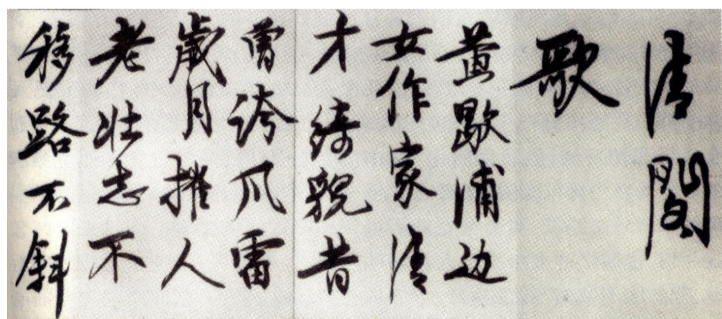 清閣
歌
黄歇浦边
女作家清
才綺貌昔
曾誇风雷
歲月摧人
老壮志不
移路不斜